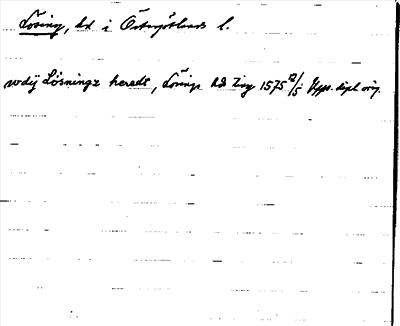 Lösing, hd i Östergötlands l.
wdij Lösningz heredt, Lösings hd Ting 1575 12/5 Upps. dipl. orig.